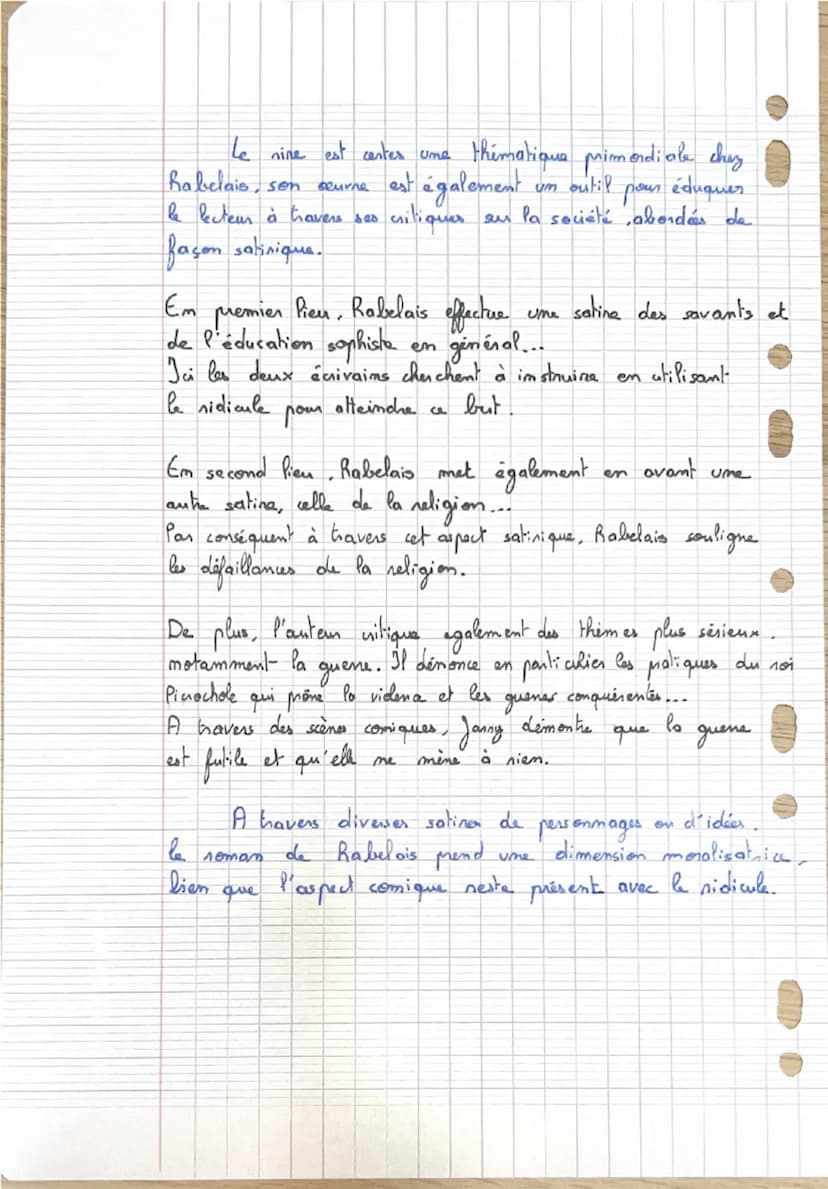 Le rire est certes une thématique primordiale chez
Rabelais, son œuvre est également un outil pour éduquer
le lecteur à travers ses critiques sur la société, abordées de
façon satirique.
En premier lieu, Rabelais effectue une satire des savants et
de l'éducation sophiste en général...
Ici les deux écrivains cherchent à instruire en utilisant
le ridicule pour atteindre ce but.
En second lieu, Rabelais met également en avant une
autre satire, celle de la religion...
Par conséquent à travers cet aspect satirique, Rabelais souligne
les défaillances de la religion.
De plus, l'auteur critique également des thèmes plus sérieux,
notamment la guerre. Il dénonce en particulier les pratiques du roi
Picrochole qui prône la violence et les guerres conquérantes...
A travers des scènes comiques, Jarry démontre que la guerre
est futile et qu'elle ne mène à rien.
A travers diverses satires de personnages ou d'idées,
le roman de Rabelais prend une dimension moralisatrice,
bien que l'aspect comique reste présent avec le ridicule.